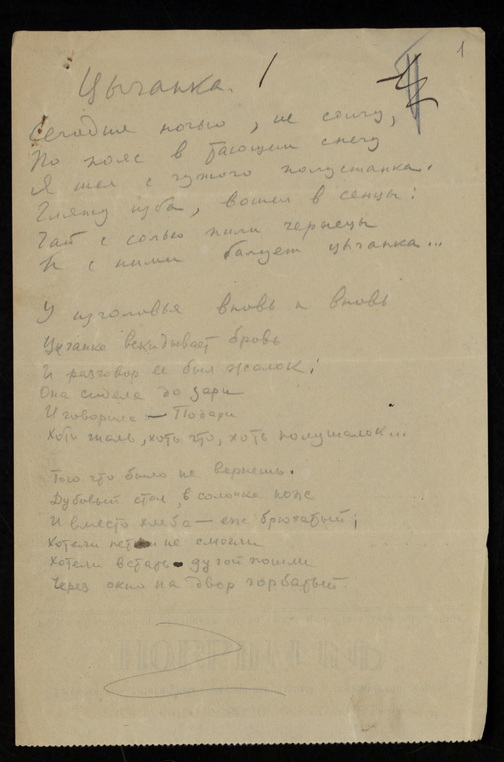 1
Цыганка.
Сегодня ночью, не солгу,
По пояс в тающем снегу
Я шел с чужого полустанка.
Гляжу изба, вошел в сенцы:
Чай с солью пили чернецы
И с ними балует цыганка...
У изголовья вновь и вновь
Цыганка вскидывает бровь
И разговор ее был жалок;
Она сидела до зари
И говорила — Подари
Хоть шаль, хоть что, хоть полушалок...
Того что было не вернешь.
Дубовый стол, в солонке нож
И вместо хлеба — еж брюхатый;
Хотели петь и не смогли
Хотели встать дугой пошли
Через окно на двор горбатый.